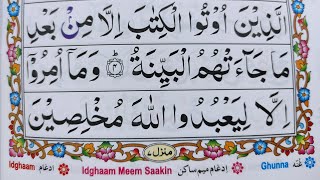 الَّذِيْنَ اُوْتُوا الْكِتٰبَ اِلَّا مِنْۢ بَعْدِ
مَا جَآءَتْهُمُ الْبَيِّنَةُ ؕ﴿۴﴾ وَمَاۤ اُمِرُوْۤا
اِلَّا لِيَعْبُدُوا اللّٰهَ مُخْلِصِيْنَ
منزل ۷
Idghaam ادغام Idghaam Meem Saakin ادغام میم ساکن Ghunna غنّہ